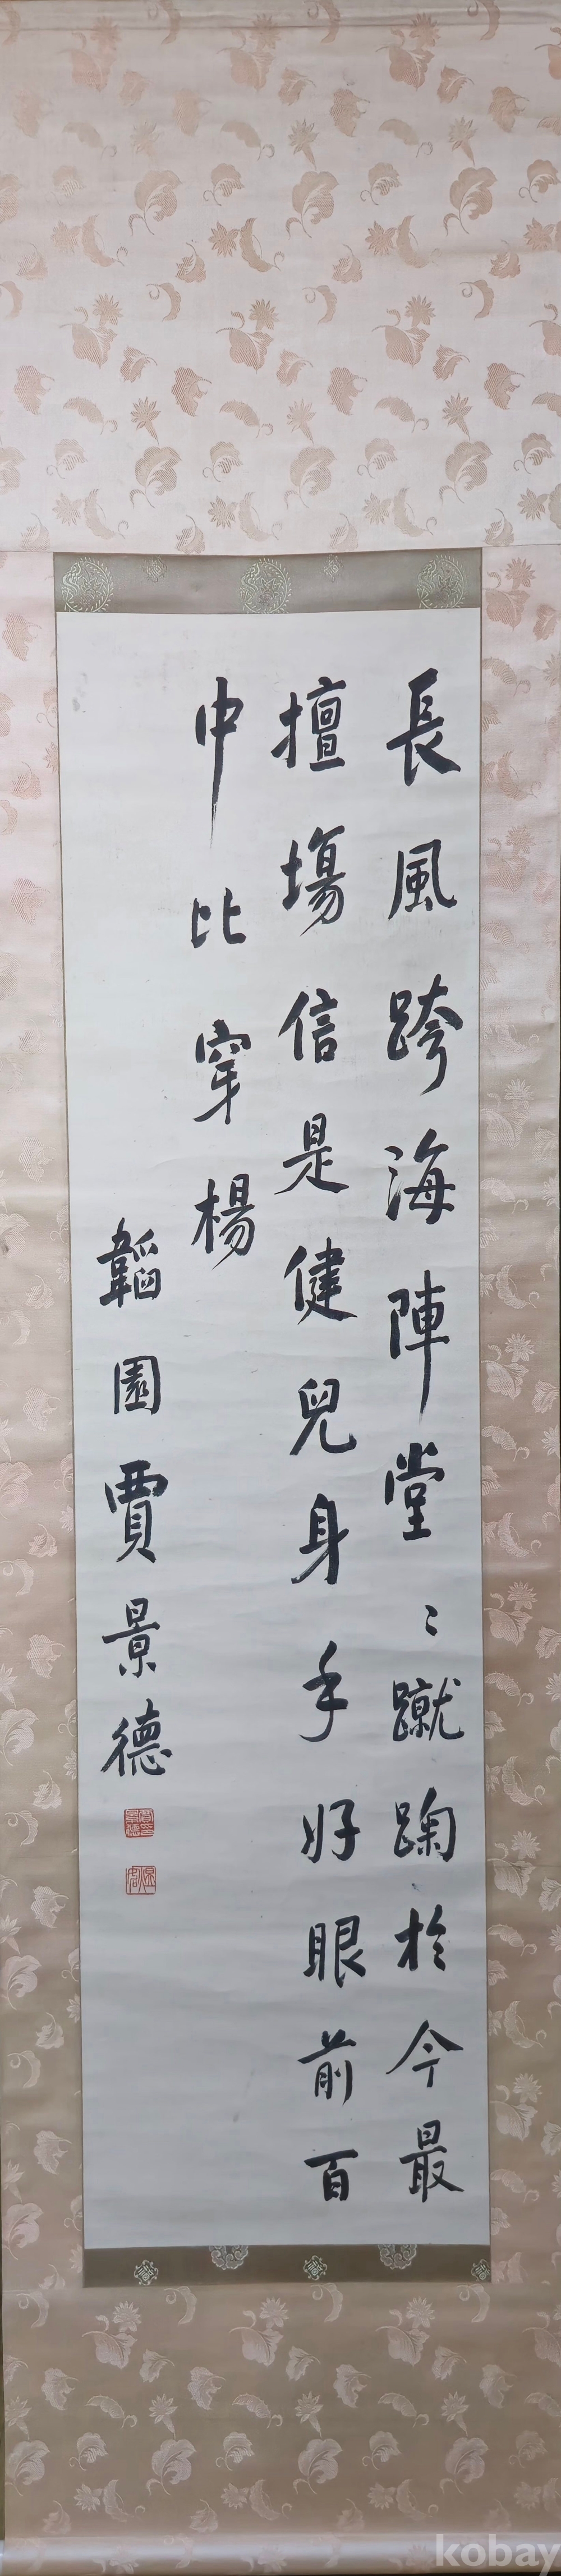 長風跨海陣堂〻蹴踘於今最
擅場信是健兒身手好眼前百
中比穿楊
韜園賈景德
kobay